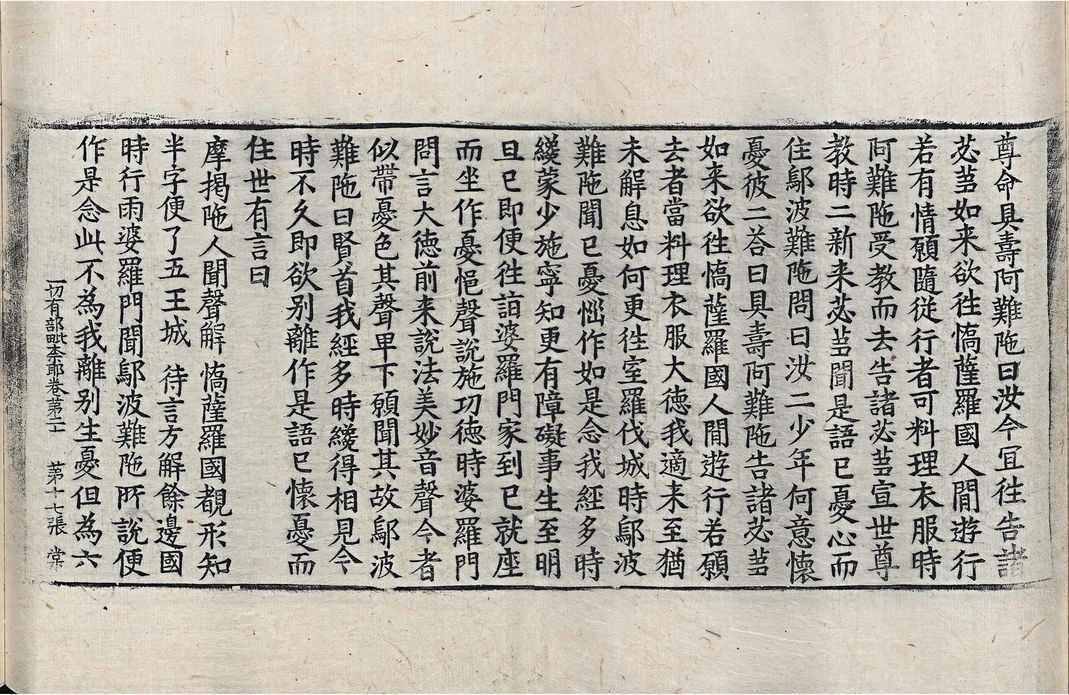 尊命具壽阿難陁曰汝今冝往告諸
苾芻如来欲往憍薩羅國人閒遊行
若有情願隨從行者可料理衣服時
阿難陁受教而去告諸苾芻宣世尊
教時二新来苾芻聞是語已憂心而
住鄔波難陁問曰汝二少年何意懷
憂彼二荅曰具壽阿難陁告諸苾芻
如来欲往憍薩羅國人閒遊行若願
去者當料理衣服大德我適来至猶
未解息如何更往室羅伐城時鄔波
難陁聞已憂惱作如是念我經多時
纔蒙少施寧知更有障礙事生至明
旦已即便往詣婆羅門家到已就座
而坐作憂悒聲說施功德時婆羅門
問言大德前来說法美妙音聲今者
似帶憂色其聲卑下願聞其故鄔波
難陁曰賢首我經多時纔得相見今
時不久即欲别離作是語已懷憂而
住世有言曰
摩揭陁人聞聲解 憍薩羅國覩形知
半字便了五王城 待言方解餘邊國
時行雨婆羅門聞鄔波難陁所說便
作是念此不為我離别生憂但為六
一切有部毗柰耶卷第二十 苐十七張 棠